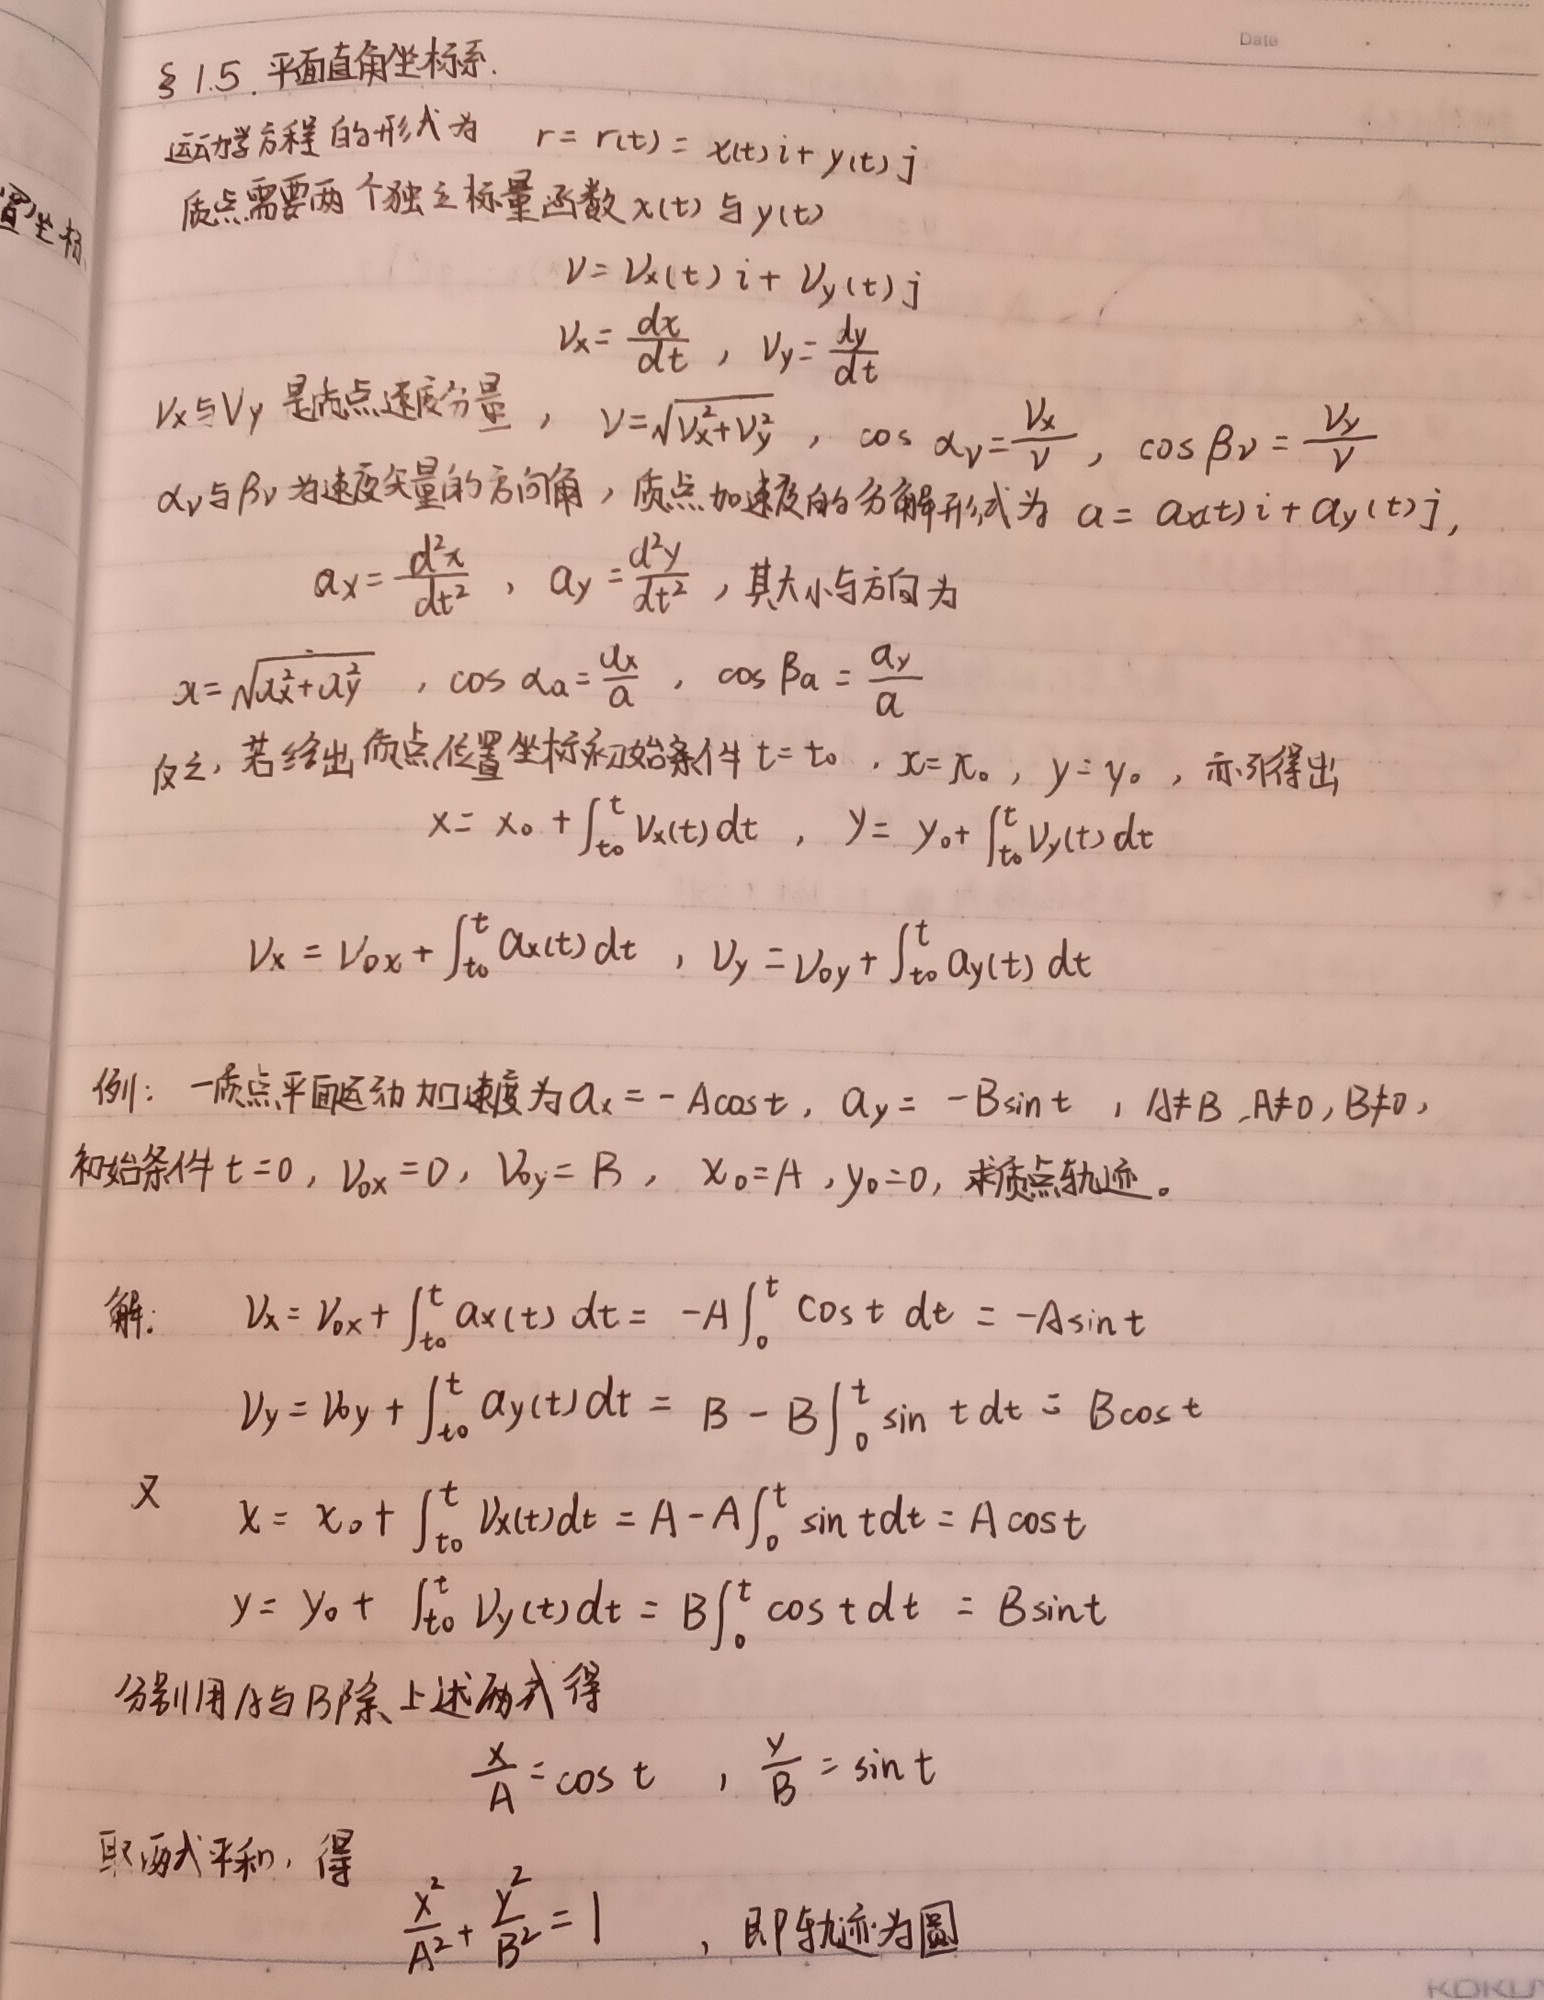 Date
§1.5. 平面直角坐标系.
运动学方程的形式为 r = r(t) = x(t) i + y(t) j
质点需要两个独立标量函数 x(t) 与 y(t)
置坐标
V = Vx(t) i + Vy(t) j
Vx = dx/dt , Vy = dy/dt
Vx与Vy 是质点速度分量 , V = √(Vx² + Vy²) , cos αv = Vx/V , cos βv = Vy/V
αv与βv 为速度矢量的方向角 , 质点加速度的分解形式为 a = ax(t) i + ay(t) j ,
ax = d²x/dt² , ay = d²y/dt² , 其大小与方向为
a = √(ax² + ay²) , cos αa = ax/a , cos βa = ay/a
反之, 若给出质点位置坐标初始条件 t = t₀ , x = x₀ , y = y₀ , 亦可得出
x = x₀ + ∫_{t₀}^{t} Vx(t) dt , y = y₀ + ∫_{t₀}^{t} Vy(t) dt
Vx = V₀x + ∫_{t₀}^{t} ax(t) dt , Vy = V₀y + ∫_{t₀}^{t} ay(t) dt
例: 一质点平面运动加速度为 ax = -Acost , ay = -Bsint , A≠B , A≠0 , B≠0 ,
初始条件 t = 0 , V₀x = 0 , V₀y = B , x₀ = A , y₀ = 0 , 求质点轨迹。
解: Vx = V₀x + ∫_{t₀}^{t} ax(t) dt = -A ∫_{0}^{t} cost dt = -Asint
Vy = V₀y + ∫_{t₀}^{t} ay(t) dt = B - B ∫_{0}^{t} sin t dt = Bcos t
又 x = x₀ + ∫_{t₀}^{t} Vx(t) dt = A - A ∫_{0}^{t} sin t dt = A cost
y = y₀ + ∫_{t₀}^{t} Vy(t) dt = B ∫_{0}^{t} cos t dt = Bsint
分别用A与B除上述两式得
x/A = cos t , y/B = sin t
取两式平和, 得
x²/A² + y²/B² = 1 , 即轨迹为圆
KOKU